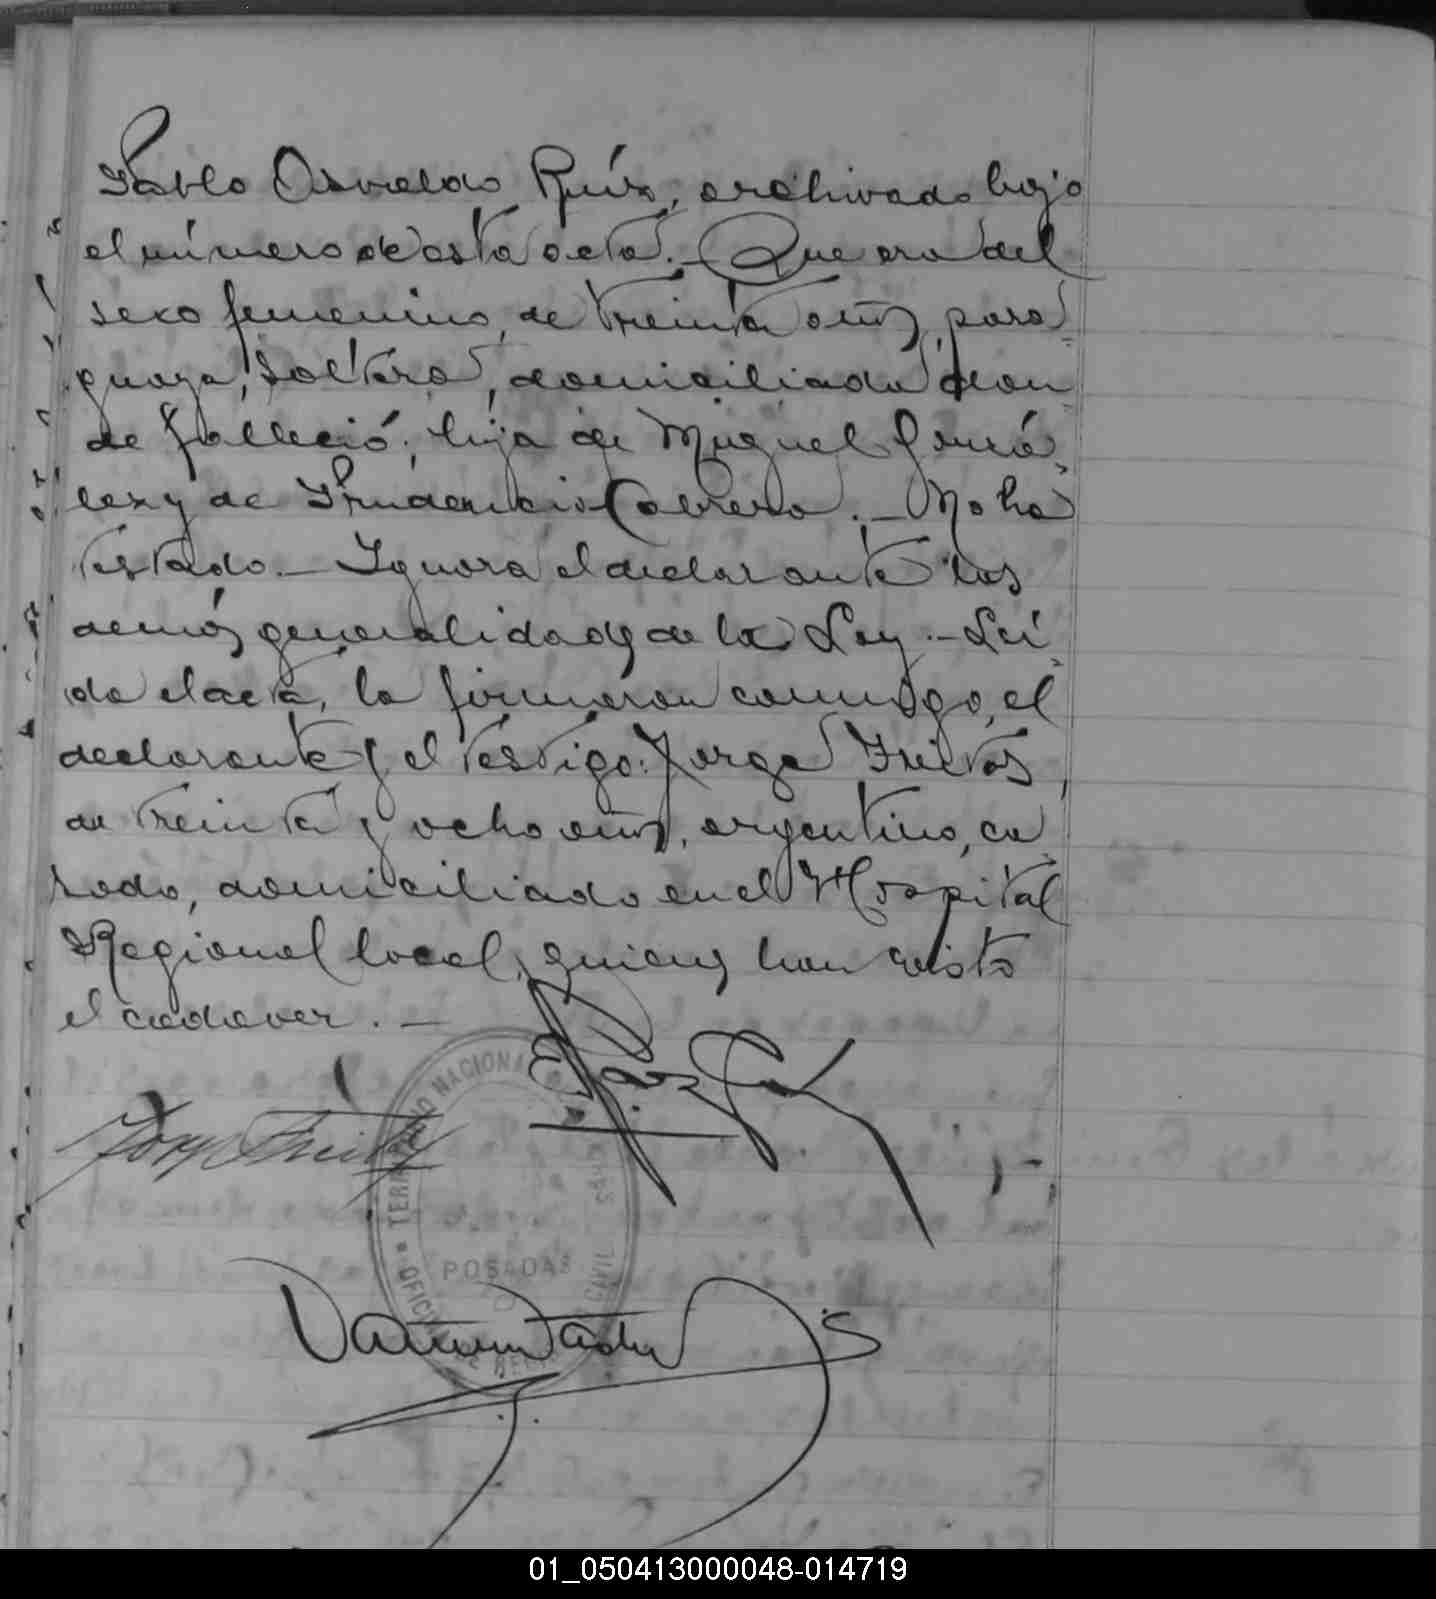 Pablo Osvaldo Ruíz, archivado bajo
el número de esta acta.- Que era del
sexo femenino, de treinta años, para-
guaya, soltera, domiciliada don-
de falleció, hija de Miguel Gonzá-
lez y de Prudencia Cabrera.- No ha
testado.- Ignora el declarante las
demás generalidades de la Ley.- Leí-
da el acta, la firmaron conmigo, el
declarante y el testigo: Jorge Freitas,
de treinta y ocho años, argentino, ca-
sado, domiciliado en el Hospital
Regional local, quienes han visto
el cadaver.-
TERRITORIO NACIONAL
POSADAS
01_050413000048-014719